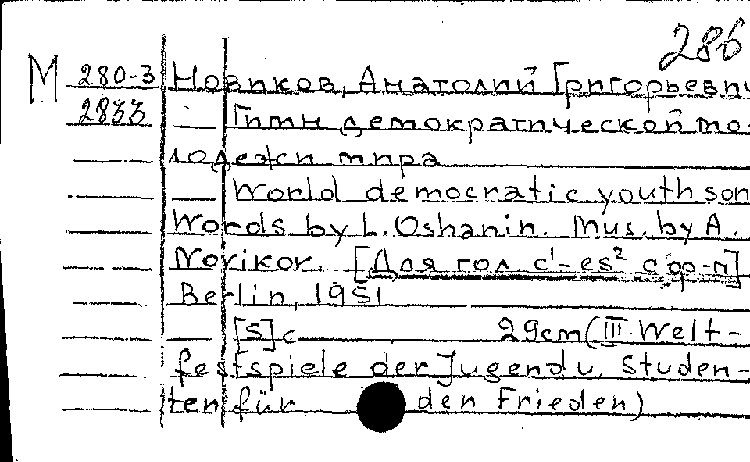 286
М 280-3 Новиков, Анатолий Григорьевич
2833 — Гимн демократической мо-
лодежи мира
— World democratic youth son
Words by L. Oshanin. Mus. by A.
Novikov. [Для гол c¹-es² с ф-п]
Berlin, 1951
[5] с 29cm (III Welt-
festspiele der Jugend u. Studen-
ten für den Frieden)